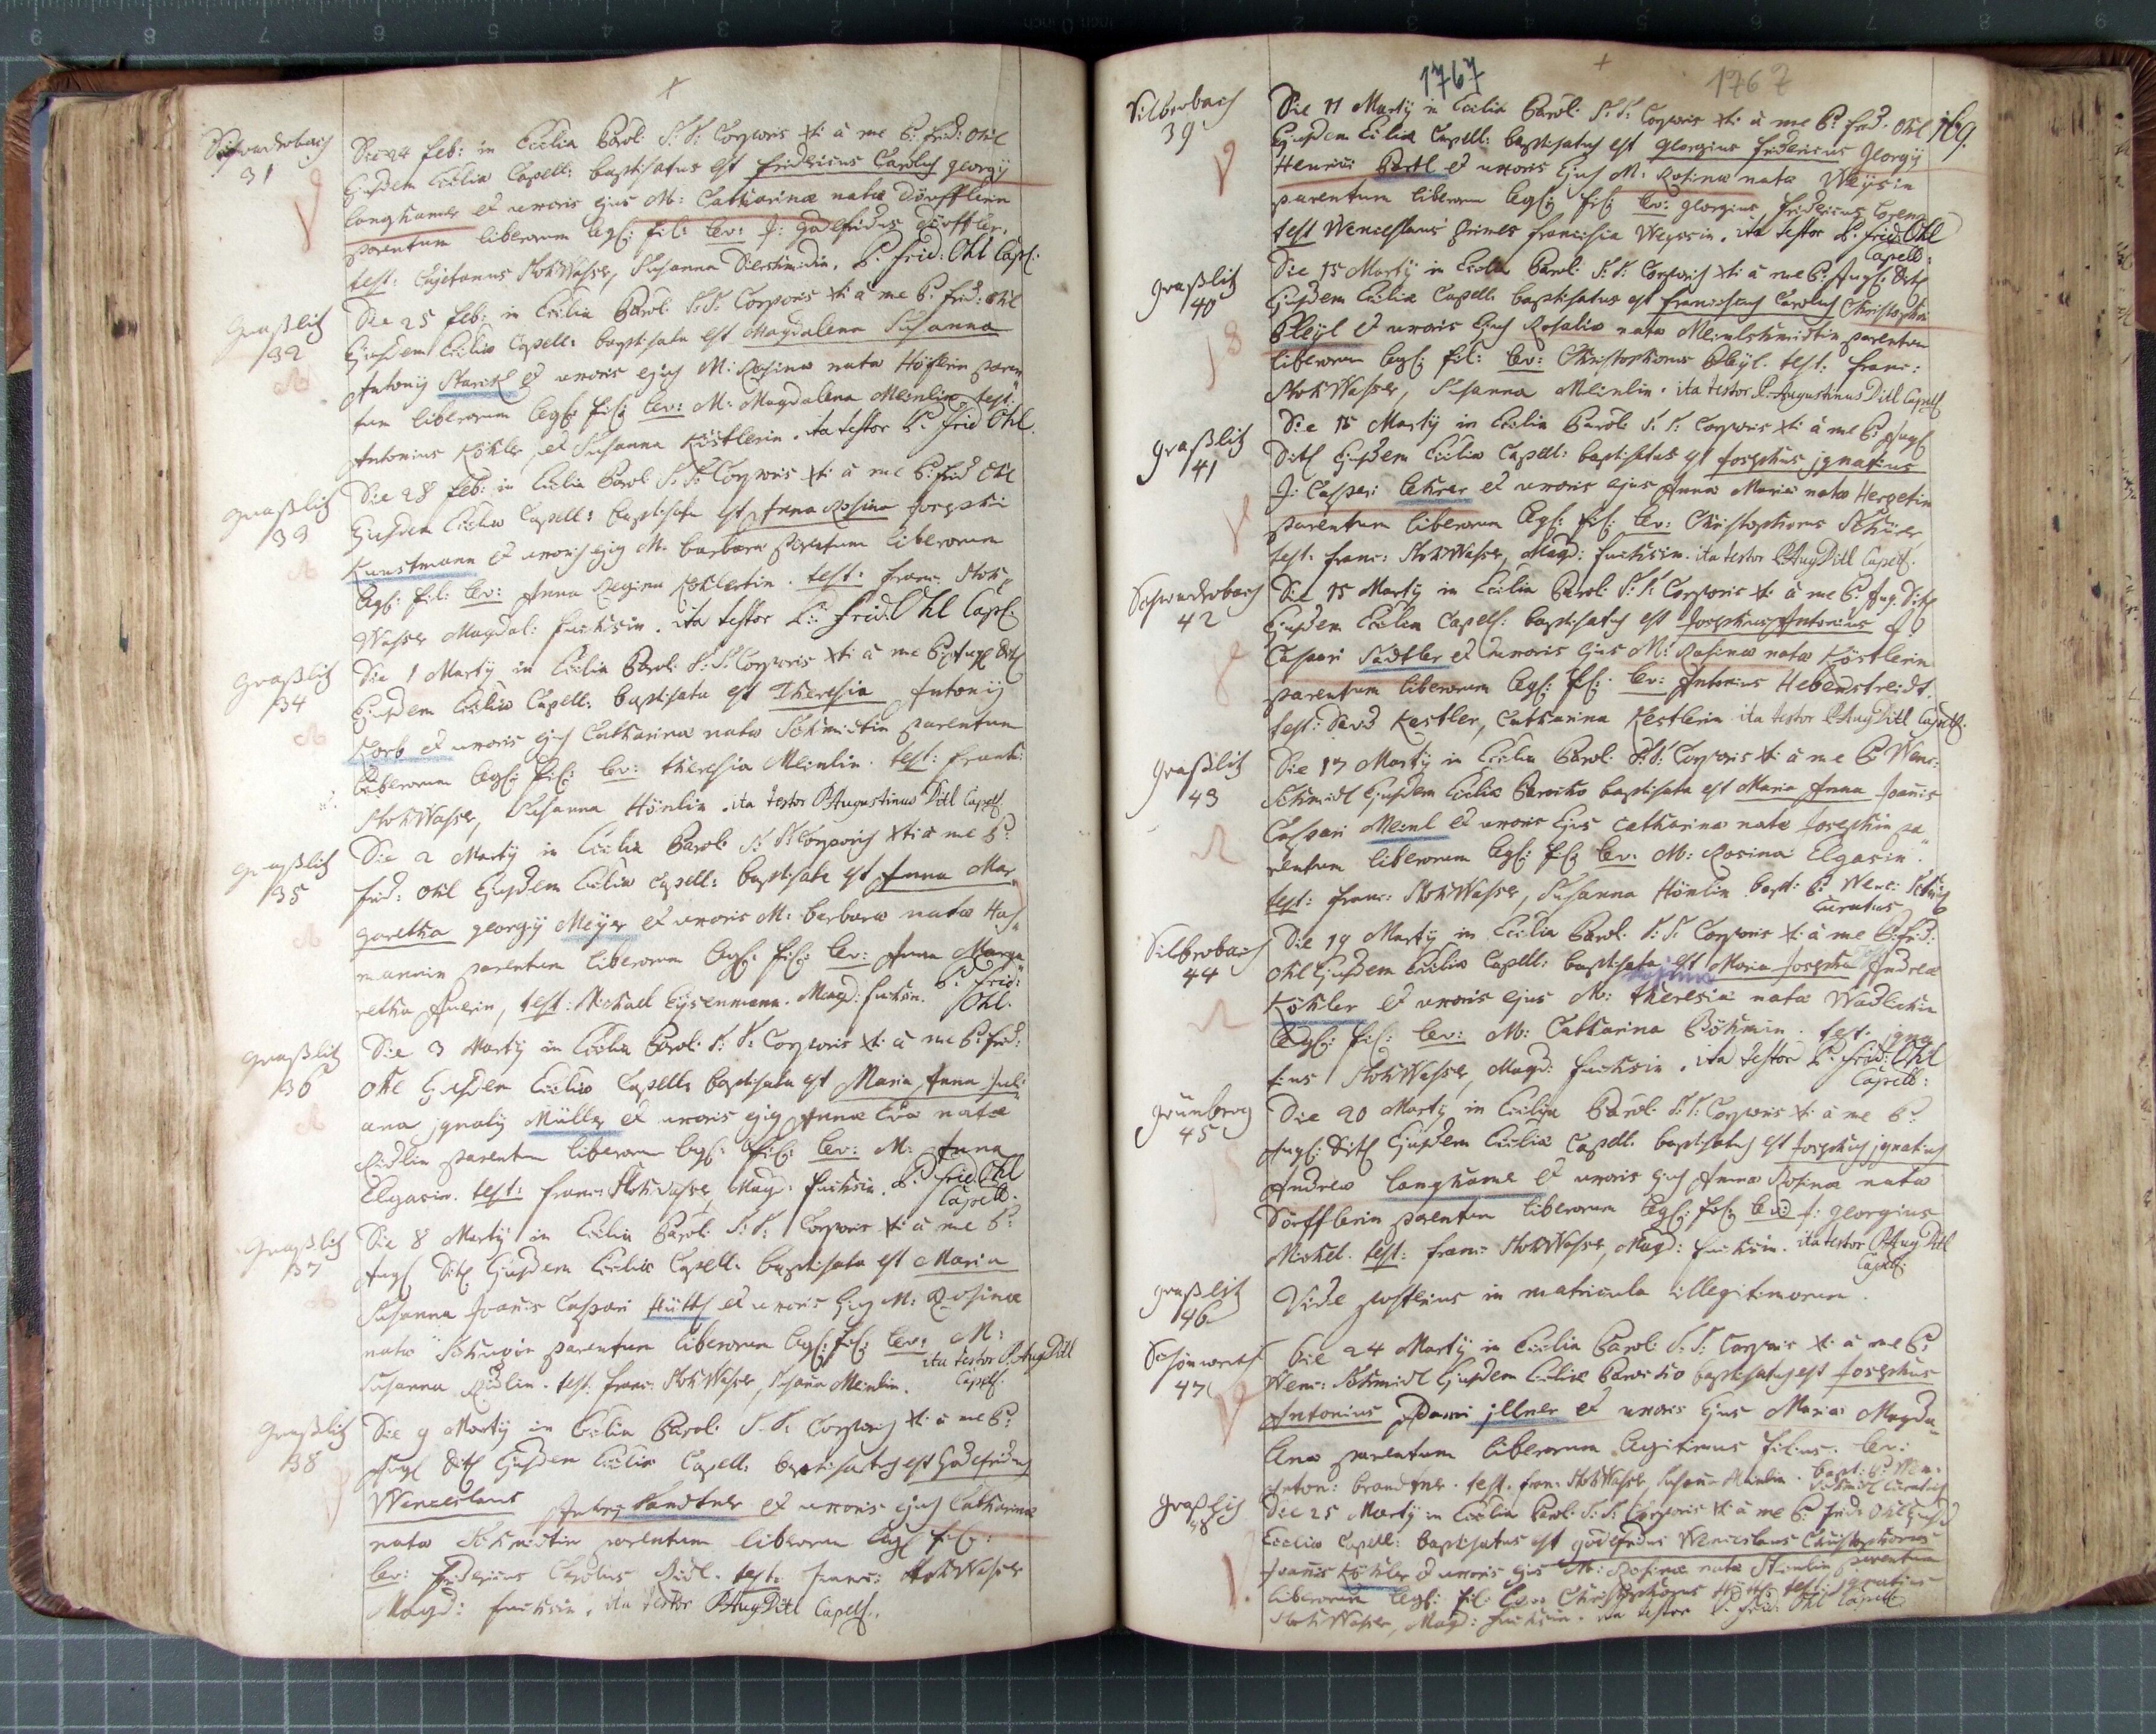 Schwaderbach
31
Die 24 Feb: in Ecclia Paroli: S.S. Corporis Xti à me P: Frid: Ohl
Ejusdem Eccliæ Capell: baptisatus est Fridericus Carolus Georgÿ
Langhamer et uxoris ejus M: Catharinæ natæ Dörfflerin
parentum liberorum legl: fil: lev: J: Godefridus Dörffler,
test: Cajetanus StokWasser, Susanna P: Frid: Ohl Capl:
Graßlitz
32
Die 25 Feb: in Ecclia Paroli: S.S. Corporis Xti à me P: Frid: Ohl
Ejusdem Eccliæ Capell: baptisata est Magdalena Susanna
Antonÿ et uxoris ejus M: Rosinæ natæ paren
tum liberorum legl: fil: lev: M: Magdalena Meinlin, test:
Antonius Köhler, et Susanna Köstlerin. ita testor P: Frid Ohl.
Graßlitz
33
Die 28 Feb: in Ecclia Paroli S.S. Corporis Xti à me P: Frid Ohl
Ejusdem Eccliæ Capell: baptisata est Anna Rosina Josephi
Kunstmann et uxoris ejus M. Barbara parentum liberorum
legl: fil: lev: Anna Regina test: Franc: Stok
Wasser Magdal: Fuchsin. ita testor P: Frid: Ohl Capl:
Graßlitz
34
Die 1 Martÿ in Ecclia Paroli: S.S. Corporis Xti à me P: Augl Ditl
Ejusdem Eccliæ Capell: baptisata est Theresia Antonÿ
Korb et uxoris ejus Catharinæ natæ Schmidtin parentum
liberorum legl: fil: lev: Theresia Meinlin. test: Franc:
StokWasser, Susanna Hönlin. ita testor P. Augustinus Ditl Capell
Graßlitz
35
Die 2 Martÿ in Ecclia Paroli: S: S. Corporis Xti à me P:
Frid: Ohl Ejusdem Eccliæ Capell: baptisata est Anna Mar
garetha Georgÿ Meÿer et uxoris M: Barbara natæ Has
mannin parentum liberorum legl: fil: lev: Anna Marga
retha test: Michael Eÿsenmann. Magd: Fuchsin. P: Frid:
Ohl.
Graßlitz
36
Die 3 Martÿ in Ecclia Paroli: S: S: Corporis Xti à me P: Frid:
Ohl Ejusdem Eccliæ Capell: baptisata est Maria Anna Juli
ana Ignatÿ Müller et uxoris ejus Annæ Eva natæ
Ridlin parentum liberorum legl: fil: lev: M: Anna
Elgasin. test: Franc: StokWasser, Magd: Fuchsin. P: Frid: Ohl
Capell.
Graßlitz
37
Die 8 Martÿ in Ecclia Paroli: S: S: Corporis Xti à me P:
Augl Ditl Ejusdem Eccliæ Capell: baptisata est Maria
Susanna Joanis Caspari et uxoris Ejus M: Rosinæ
natæ parentum liberorum legl: fil: lev: M:
Susanna Ridlin. test. Franc: StokWasser, Susana Meinlin. ita testor P. Aug Ditl
Capell.
Graßlitz
38
Die 9 Martÿ in Ecclia Paroli: S: S: Corporis Xti à me P:
Augl Ditl Ejusdem Eccliæ Capell: baptisatus est Godefridus
Wenceslaus Antonÿ Sandtner et uxoris ejus Catharinæ
natæ Schmidtin parentum liberorum legl: fil:
lev: Fridericus Carolus Ridl. test: Franc: StokWasser
Magd: Fuchsin. ita testor P Aug Ditl Capell.
1767
1767
169.
Silberbach
39
Die 11 Martÿ in Ecclia Paroli: S: S: Corporis Xti à me P: Frid: Ohl
Ejusdem Eccliæ Capell: baptisatus est Georgius Fridericus Georgÿ
Henrici Bartl et uxoris Ejus M: Rosinæ natæ Weÿsin
parentum liberorum legl: fil: lev: Georgius Fridericus Lorenz
test Wenceslaus Francisca Weÿssin. ita testor P. Frid: Ohl
Capell:
Graßlitz
40
Die 15 Martÿ in Ecclia Paroli: S: S: Corporis Xti à me P: Augl: Ditl
Ejusdem Eccliæ Capell: baptisatus est Franciscus Carolus Christophori
Bleÿl et uxoris Ejus Rosaliæ natæ Meinlschmidtin parentum
liberorum legl: fil: lev: Christophorus Bleÿl. test: Franc:
StokWasser, Susanna Meinlin. ita testor P. Augustinus Ditl Capell
Graßlitz
41
Die 15 Martÿ in Ecclia Paroli: S: S: Corporis Xti à me P: Augl
Ditl Ejusdem Eccliæ Capell: baptisatus est Josephus Ignatius
J: Caspari Lehrer et uxoris ejus Anna Maria natæ Hergetin
parentum liberorum legl: fil: lev: Christophorus
test. Franc: StokWasser, Magd: Fuchsin. ita testor P Aug Ditl Capell.
Schwaderbach
42
Die 15 Martÿ in Ecclia Paroli: S: S: Corporis Xti à me P: Aug. Ditl
Ejusdem Eccliæ Capell: baptisatus est Josephus Antonius J:
Caspari Sadtler et uxoris Ejus M: Rosinæ natæ Köstlerin
parentum liberorum legl: fil: lev: Antonius Hebenstreidt.
test: David Kestler, Catharina Kestlerin ita testor P Aug Ditl Capell.
Graßlitz
43
Die 17 Martÿ in Ecclia Paroli: S: S: Corporis Xti à me P: Wenc:
Schmidl Ejusdem Eccliæ Parocho baptisata est Maria Anna Joanis
Caspari Meinl et uxoris Ejus Catharinæ natæ Josephin pa
rentum liberorum legl: fil: lev: M: Rosina Elgasin.
test: Franc: StokWasser, Susanna Hönlin bapt: P: Wenc: Schmidl
Curatus
Silberbach
44
Die 19 Martÿ in Ecclia Paroli: S: S: Corporis Xti à me P: Frid:
Ohl Ejusdem Eccliæ Capell: baptisata est Maria Josepha Andreæ
Köhler et uxoris ejus M: Theresiæ natæ
legl: fil: lev: M: Catharina Böhmin. test. Igna
tius StokWasser, Magd: Fuchsin. ita testor P: Frid: Ohl
Capell:
Grünberg
45
Die 20 Martÿ in Ecclia Paroli: S: S: Corporis Xti à me P:
Augl: Ditl Ejusdem Eccliæ Capell: baptisatus est Josephus Ignatius
Andreæ Langhamer et uxoris ejus Anna Rosinæ natæ
Dörfflerin parentum liberorum legl: fil: lev: J: Georgius
Michel. test: Franc: StokWasser, Magd: Fuchsin. ita testor P Aug Ditl
Capell.
Graßlitz
46
Vide posterius in matricula illegitimorum.
Schönwerth
47
Die 24 Martÿ in Ecclia Paroli: S: S: Corporis Xti à me P:
Wenc: Schmidl Ejusdem Eccliæ Parocho baptisatus est Josephus
Antonius Adami Illner et uxoris Ejus Maria Magda
lena parentum liberorum legitimus filius. lev:
Anton: Brandtner. test. Franc: StokWasser, Susana Meinlin. bapt: P: Wen:
Schmidl Curatus
Graßlitz
48
Die 25 Martÿ in Ecclia Paroli: S: S: Corporis Xti à me P: Frid: Ohl Ejusd
Eccliæ Capell: baptisatus est Godefridus Wenceslaus Christophorus
Joanis Köhler et uxoris ejus M: Rosinæ natæ parentum
liberorum legl: fil: lev: Christophorus test: Ignatius
StokWasser, Magd: Fuchsin. ita testor P. Frid: Ohl Capell